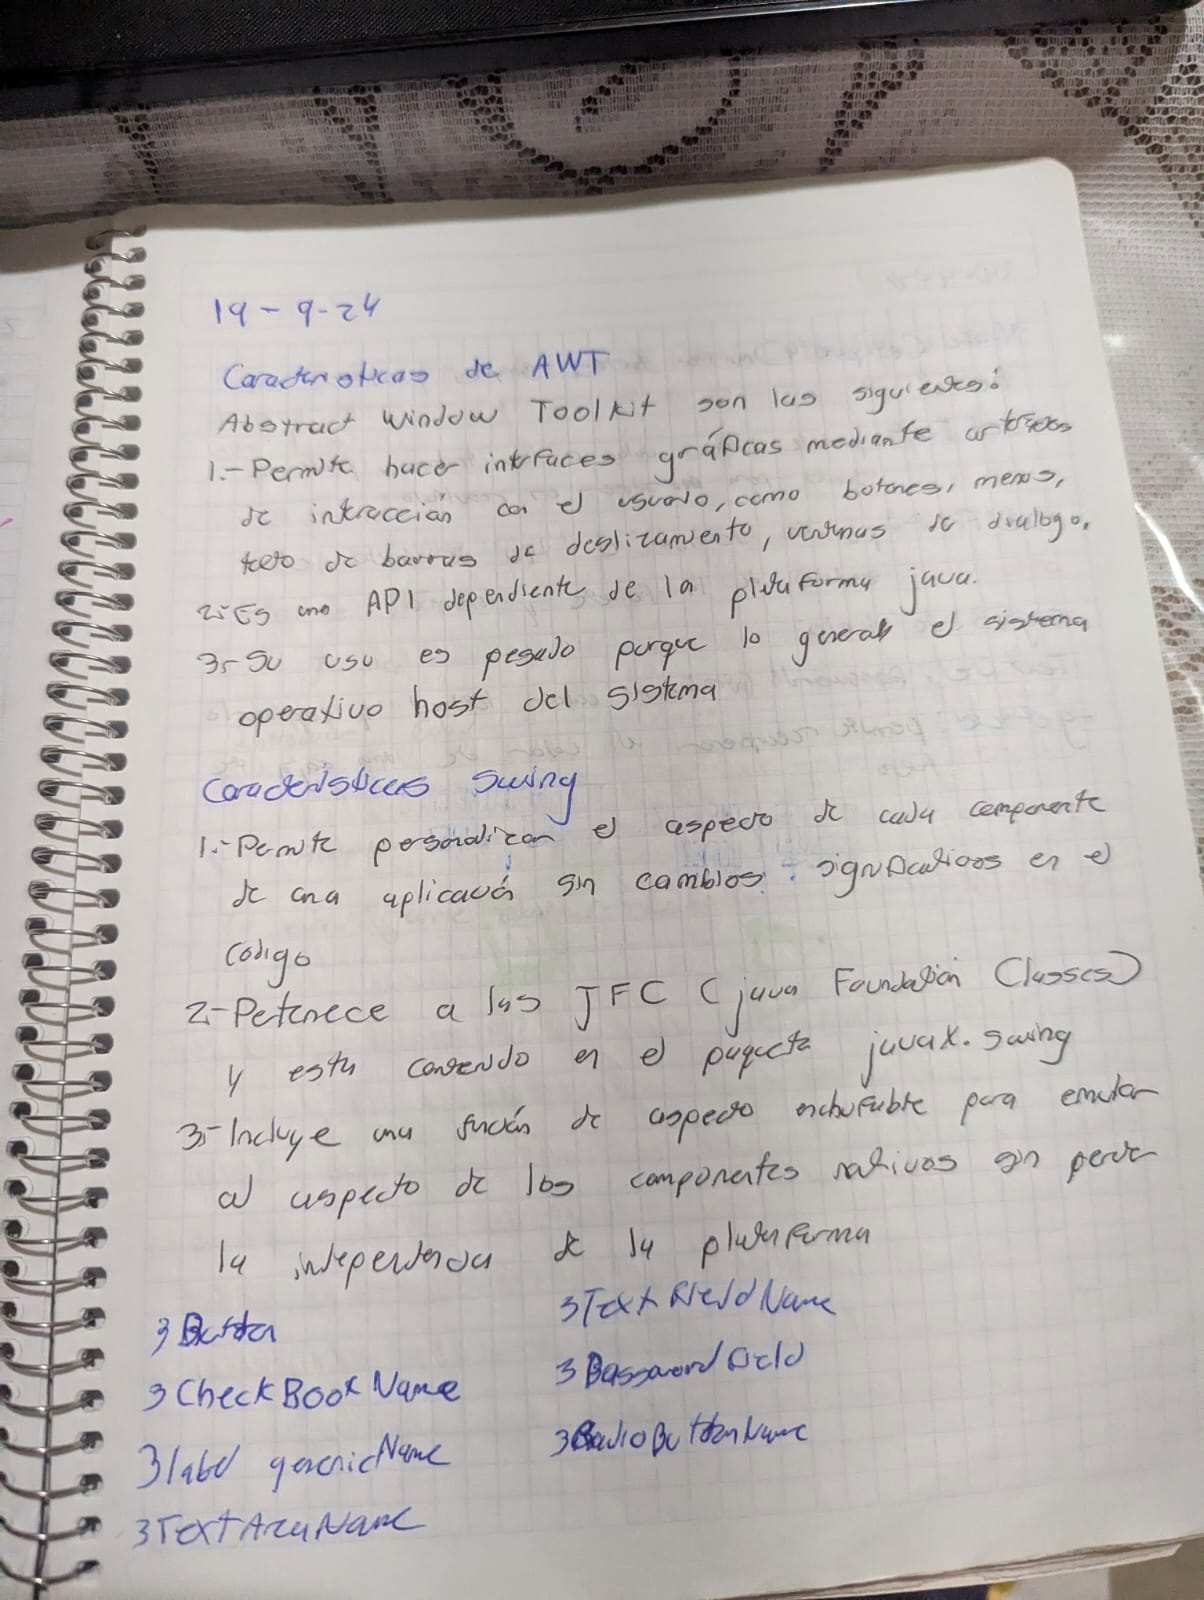 19-9-24
Caracteristicas de AWT
Abstract Window Toolkit son las siguientes:
1.-Permite hacer interfaces gráficas mediante
de interacción con el usuario, como botones, menus,
texto de barras de deslizamiento, ventanas de dialogo.
2.-Es una API dependiente de la plataforma java.
3.-Su uso es pesado porque lo genera el sistema
operativo host del sistema
Caracteristicas Swing
1.-Permite personalizar el aspecto de cada componente
de una aplicación sin cambios significativos en el
codigo
2.-Petenece a las JFC (java Foundation Classes)
y esta contenido en el paquete javax.swing
3.-Incluye una función de aspecto enchufable para emular
al aspecto de los componentes nativos sin perder
la independencia de la plataforma
3 Button
3 TextFieldName
3 CheckBooxName
3 PasswordField
3 label genericName
3 RadioButtonName
3 TextAreaName